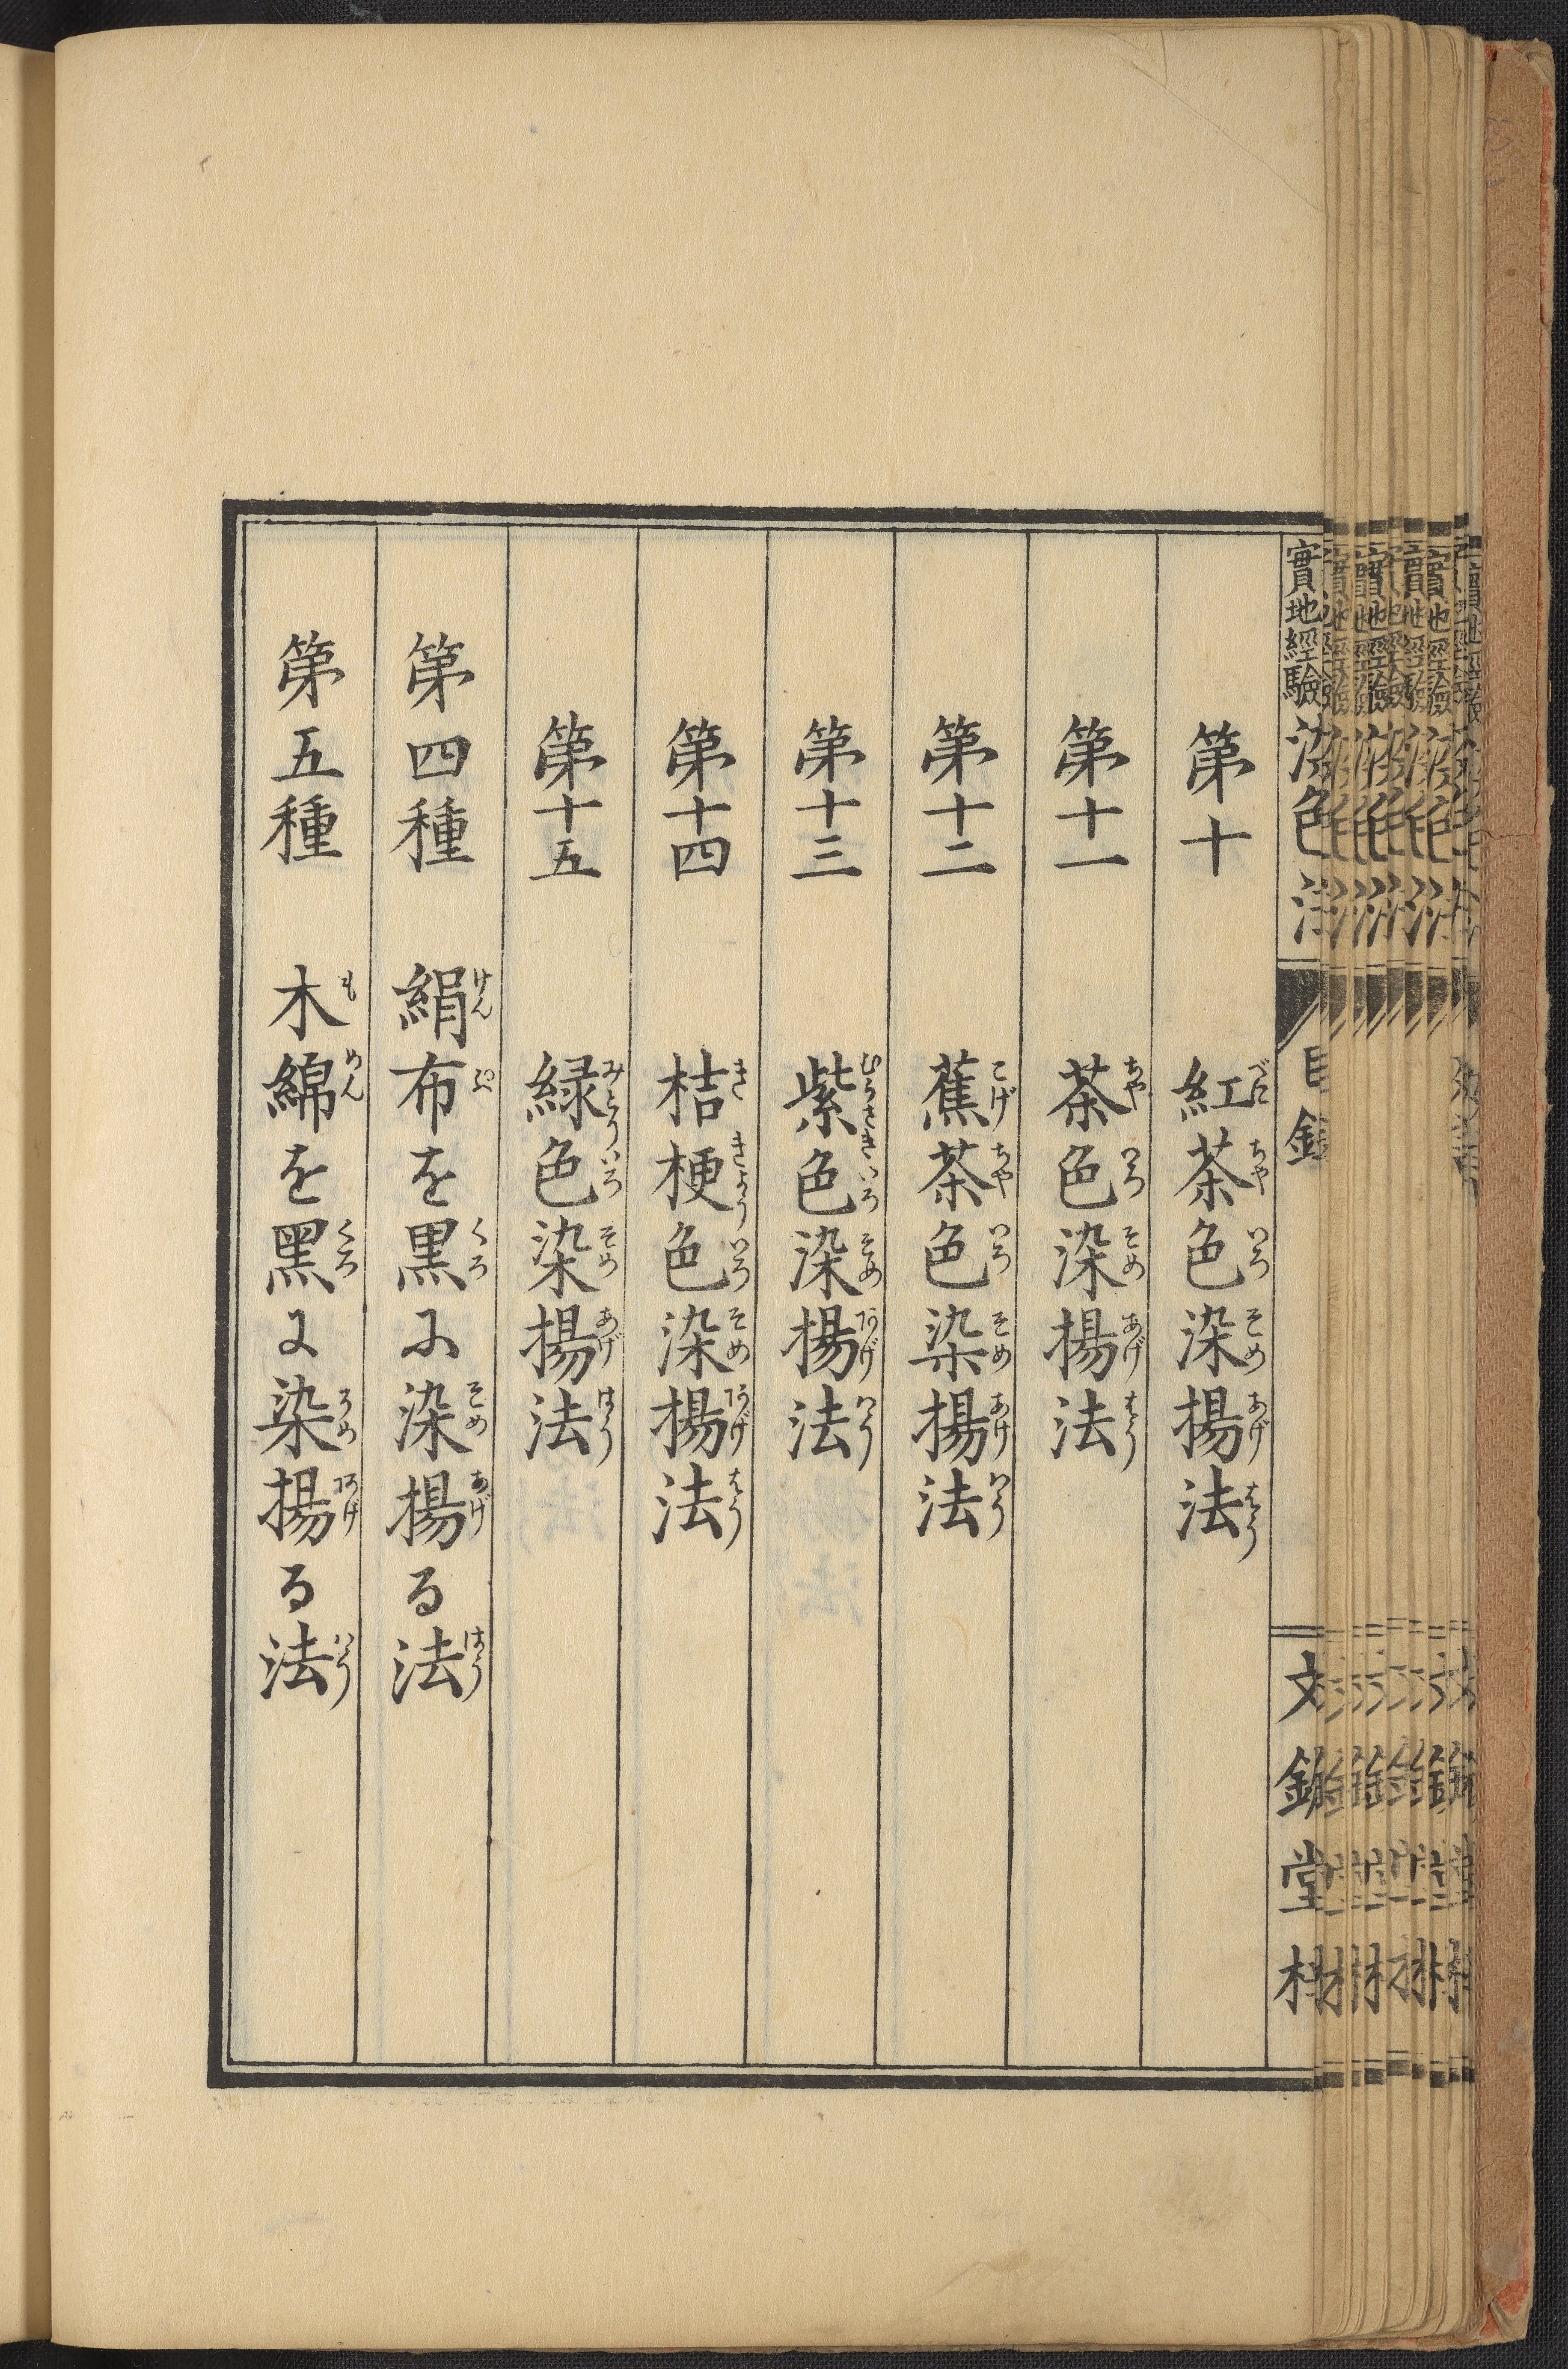 實地經驗染色法 目錄 文錦堂
第十 紅茶色染揚法
第十一 茶色染揚法
第十二 蕉茶色染揚法
第十三 紫色染揚法
第十四 桔梗色染揚法
第十五 緑色染揚法
第四種 絹布を黒に染揚る法
第五種 木綿を黑に染揚る法